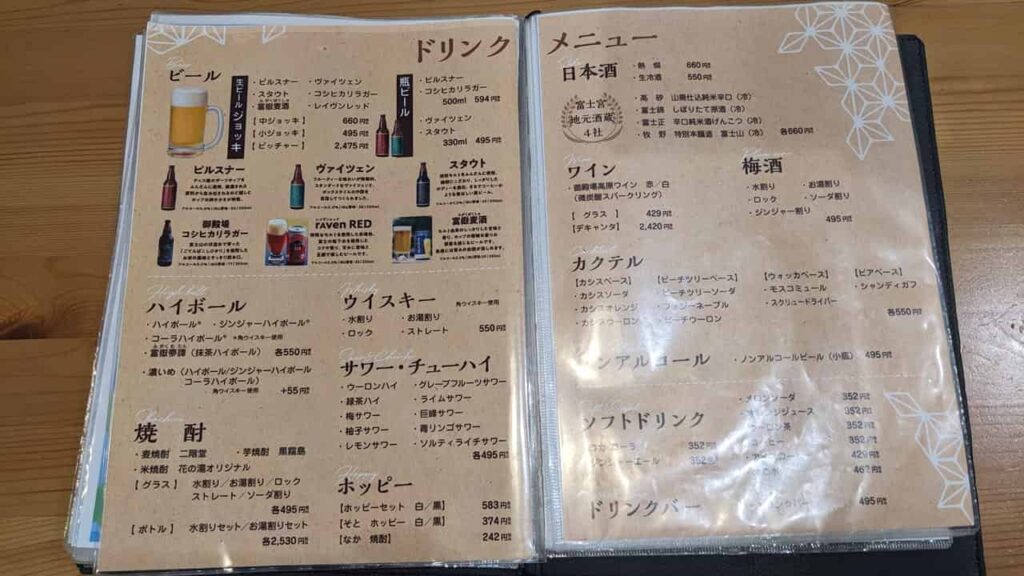 ドリンク メニュー
ビール
生ビール ジョッキ
・ピルスナー ・ヴァイツェン
・スタウト ・コシヒカリラガー
・富嶽麦酒 ・レイヴンレッド
【中ジョッキ】 660円
【小ジョッキ】 495円
【ピッチャー】 2,475円
瓶ビール
・ピルスナー
・コシヒカリラガー
500ml 594円
・ヴァイツェン
・スタウト
330ml 495円
ピルスナー
ヴァイツェン
スタウト
御殿場
コシヒカリラガー
raven RED
富嶽麦酒
ハイボール
・ハイボール* ・ジンジャーハイボール*
・コーラハイボール* *角ウイスキー使用
・富嶽夢譚（抹茶ハイボール） 各550円
・濃いめ（ハイボール/ジンジャーハイボール
コーラハイボール）
角ウイスキー使用 +55円
ウイスキー 角ウイスキー使用
・水割り ・お湯割り
・ロック ・ストレート 550円
サワー・チューハイ
・ウーロンハイ ・グレープフルーツサワー
・緑茶ハイ ・ライムサワー
・梅サワー ・巨峰サワー
・柚子サワー ・青リンゴサワー
・レモンサワー ・ソルティライチサワー
各495円
焼酎
・麦焼酎 二階堂 ・芋焼酎 黒霧島
・米焼酎 花の湯オリジナル
【グラス】 水割り／お湯割り／ロック
ストレート／ソーダ割り
各495円
【ボトル】 水割りセット／お湯割りセット
各2,530円
ホッピー
【ホッピーセット 白／黒】 583円
【そと ホッピー 白／黒】 374円
【なか 焼酎】 242円
日本酒
・熱燗 660円
・生冷酒 550円
富士宮
地元酒蔵
4社
・高砂 山廃仕込純米辛口（冷）
・富士錦 しぼりたて原酒（冷）
・富士正 辛口純米酒げんこつ（冷）
・牧野 特別本醸造 富士山（冷） 各660円
ワイン
・御殿場高原ワイン 赤／白
（微炭酸スパークリング）
【グラス】 429円
【デキャンタ】 2,420円
梅酒
・水割り ・お湯割り
・ロック ・ソーダ割り
・ジンジャー割り
495円
カクテル
【カシスベース】 【ピーチツリーベース】 【ウォッカベース】 【ビアベース】
・カシスソーダ ・ピーチツリーソーダ ・モスコミュール ・シャンディガフ
・カシスオレンジ ・ファジーネーブル ・スクリュードライバー
・カシスウーロン ・ピーチウーロン 各550円
ノンアルコール ・ノンアルコールビール（小瓶） 495円
ソフトドリンク
・コカ・コーラ 352円
・ジンジャーエール 352円
・メロンソーダ 352円
・オレンジジュース 352円
・ウーロン茶 352円
352円
429円
462円
ドリンクバー ・ドリンクバー 495円